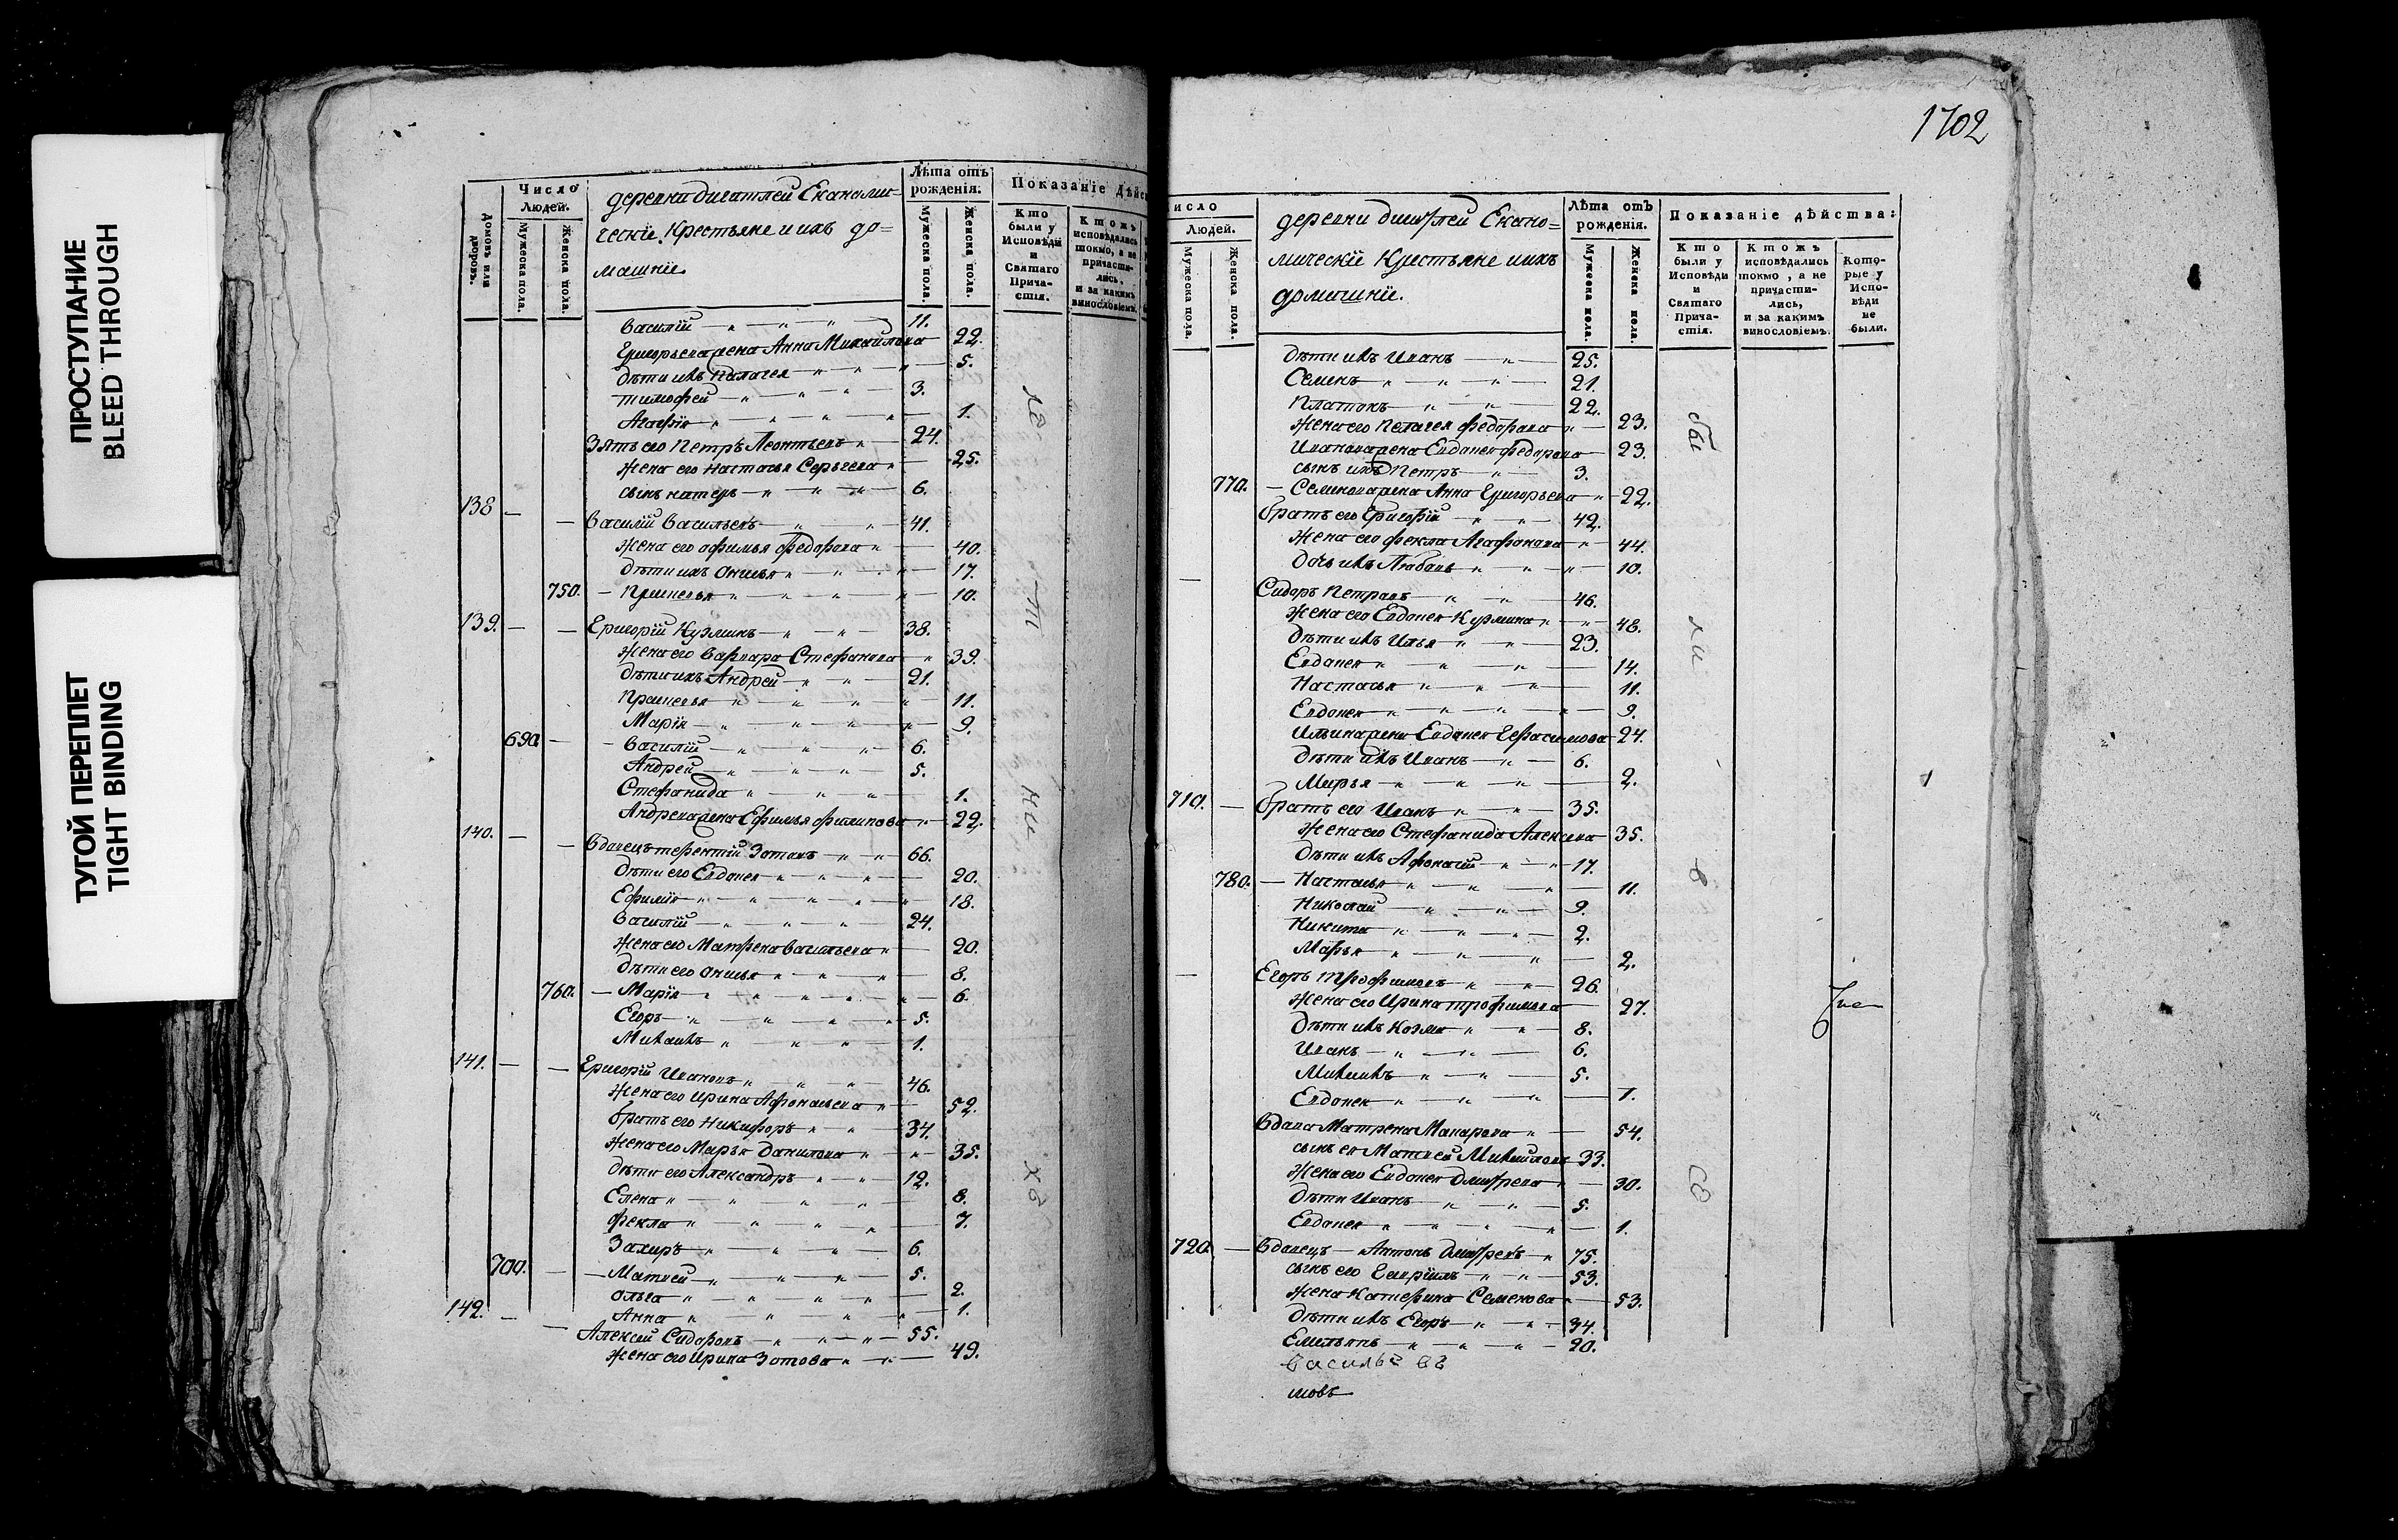 ПРОСТУПАНИЕ
BLEED THROUGH
ТУГОЙ ПЕРЕПЛЕТ
TIGHT BINDING
Домовъ или дворовъ.
Число Людей.
Мужеска пола.
Женска пола.
деревни Економи-
ческіе Крестьяне и ихъ до=
машніе
Лѣта отъ рожденія.
Мужеска пола.
Женска пола.
Показаніе Дѣйс
Кто были у Исповѣди и Святаго Причастія.
Ктожъ исповѣдались токмо, а не причастились, и за какимъ винословіемъ.
Василій 11.
Григорьева жена Анна Михайлова 22.
Дѣти ихъ Палагея 5.
Тимофей 3.
Агафія 1.
Зять его Петръ Леонтьевъ 24.
Жена его Настасья Сергѣева 25.
сынъ 6.
138 Василій Васильевъ 41.
Жена его Офимья Федорова 40.
Дѣти ихъ Онисья 17.
750. Прасковья 10.
139. Григорій Кузминъ 38.
Жена его Варвара Стефанова 39.
Дѣти ихъ Андрей 21.
Прасковья 11.
Марія 9.
690. Василій 6.
Андрей 5.
Стефанида 1.
Андреева жена Ефимья Филипова 22.
140. Вдовецъ Терентій Зотовъ 66.
Дѣти его Евдокея 20.
Ефимія 18.
Василій 24.
Жена его Матрена Васильева 20.
Дѣти его Онисья 8.
760. Марія 6.
Егоръ 5.
Михаилъ 1.
141. Григорій Ивановъ 46.
Жена его Ирина Афонасьева 52.
братъ его Никифоръ 34.
Жена его Марья Данилова 35.
Дѣти его Александръ 12.
Елена 8.
Фекла 7.
Захаръ 6.
700. Матвей 5.
Ольга 2.
Анна 1.
142. Алексей Сидоровъ 55.
Жена его Ирина Зотова 49.
1702
исло
Людей.
Мужеска пола.
Женска пола.
деревни Еконо=
мическіе Крестьяне и ихъ
домашніе.
Лѣта отъ рожденія.
Мужеска пола.
Женска пола.
Показаніе дѣйства:
Кто были у Исповѣди и Святаго Причастія.
Ктожъ исповѣдались токмо, а не причастились, и за какимъ винословіемъ.
Которые у Исповѣди не были.
Дѣти ихъ Иванъ 25.
Семенъ 21.
Платонъ 22.
Жена его Пелагея Федорова 23.
Иванова жена Евдокея Федорова 23.
сынъ ихъ Петръ 3.
770. Семенова жена Анна Григорьева 22.
братъ его Григорій 42.
Жена его Фекла Агафонова 44.
Дочь ихъ Любовь 10.
Сидоръ Петровъ 46.
Жена его Евдокея Кузмина 48.
Дѣти ихъ Илья 23.
Евдокея 14.
Настасья 11.
Евдокея 9.
Ильина жена Евдокея Герасимова 24.
Дѣти ихъ Иванъ 6.
Марья 2.
710. братъ его Иванъ 35.
Жена его Стефанида Алексѣева 35.
Дѣти ихъ Афонасій 17.
780. Настасья 11.
Николай 9.
Никита 2.
Марья 2.
Егоръ Трофимовъ 26.
Жена его Ирина Трофимова 27.
Дѣти ихъ Козма 8.
Иванъ 6.
Михаилъ 5.
Евдокея 1.
Вдова Матрена Макарова 54.
сынъ ея Матвей Михайловъ 33.
Жена его Евдокея Дмитрева 30.
Дѣти Иванъ 5.
Евдокея 1.
720. Вдовецъ Антонъ Дмитревъ 75.
сынъ его Гаврилъ 53.
Жена Катерина Семенова 53.
Дѣти ихъ Егоръ 34.
Емельянъ 20.